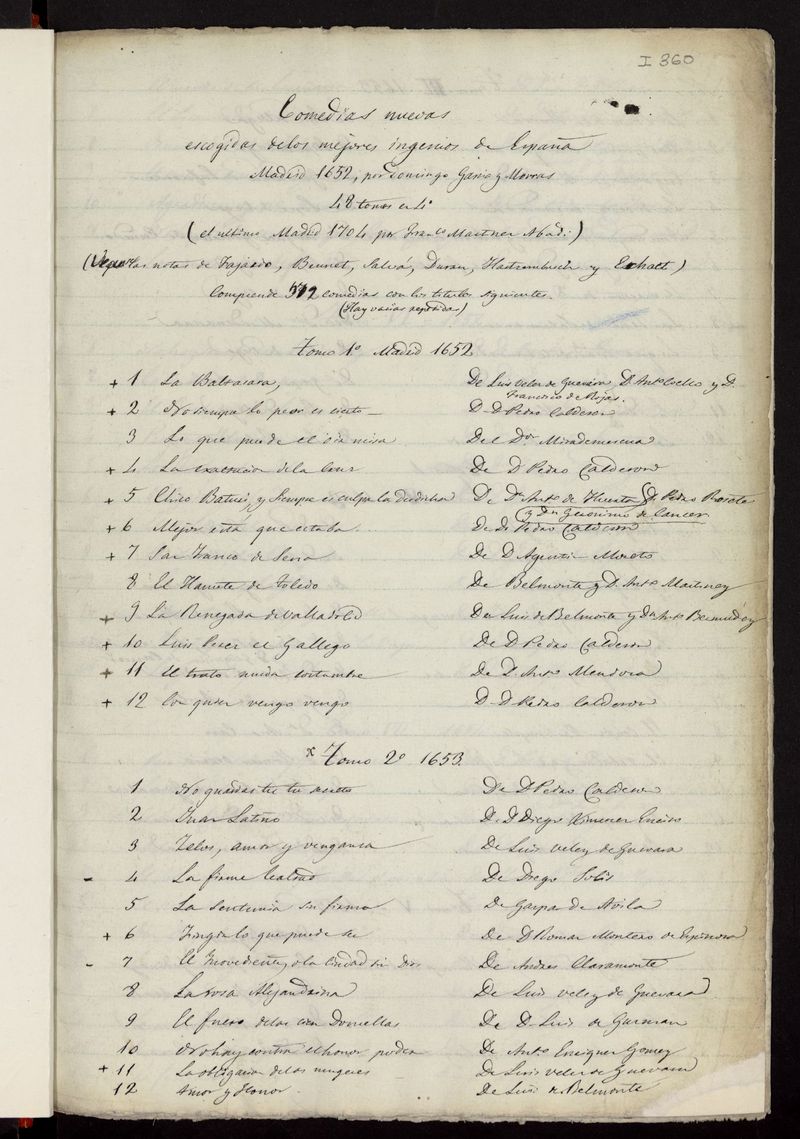 I 360
Comedias nuevas
escogidas de los mejores ingenios de España
Madrid 1652, por Domingo Garcia y Morras
48 tomos en 4º
(el ultimo Madrid 1704 por Franco Martinez Abad:)
(Vease las notas de Fajardo, Brunet, Salvá, Duran, Hartzenbusch y Exhalt)
Comprende comedias con los titulos siguientes.
(Hay varias repetidas)
Tomo 1º Madrid 1652
+ 1 La Baltasara, De Luis Velez de Guevara D. Anto Coello y D.
Francisco de Rojas.
+ 2 No siempre lo peor es cierto — D. D Pedro Calderon
3 Lo que puede el oir misa Del Dor Mirademescua
+ 4 La exaltacion de la Cruz De D Pedro Calderon
+ 5 Chico Baturi, y Siempre es culpa la desdicha De Dn Anto de Huerta, D. Pedro Rosete
y Dn Geronimo de Cancer
+ 6 Mejor está que estaba De D. Pedro Calderon
+ 7 San Franco de Sena De D Agustin Moreto
8 El Hamete de Toledo De Belmonte y D. Anto Martinez
+ 9 La Renegada de Valladolid De Luis de Belmonte y Dn Anto Bermudez
+ 10 Luis Perez el Gallego De D Pedro Calderon
+ 11 El trato muda costumbre De D. Anto Mendoza
+ 12 Con quien vengo vengo D. D Pedro Calderon
x Tomo 2º 1653.
1 No guardas tu tu secreto De D Pedro Calderon
2 Juan Latino De D Diego Ximenez Enciso
3 Zelos, amor y venganza De Luis Velez de Guevara
- 4 La firme lealtad De Diego Solis
5 La sentencia sin firma De Gaspar de Avila
+ 6 Fingir lo que puede ser De D Roman Montero de Espinosa
- 7 El Inobediente, o la Ciudad sin Dios De Andres Claramonte
8 La rosa Alejandrina De Luis Velez de Guevara
9 El fuero de las cien Doncellas De D. Luis de Guzman
10 No hay contra el honor poder De Anto Enriquez Gomez
+ 11 La obligacion de las mugeres De Luis Velez de Guevara
12 Amor y Honor De Luis de Belmonte